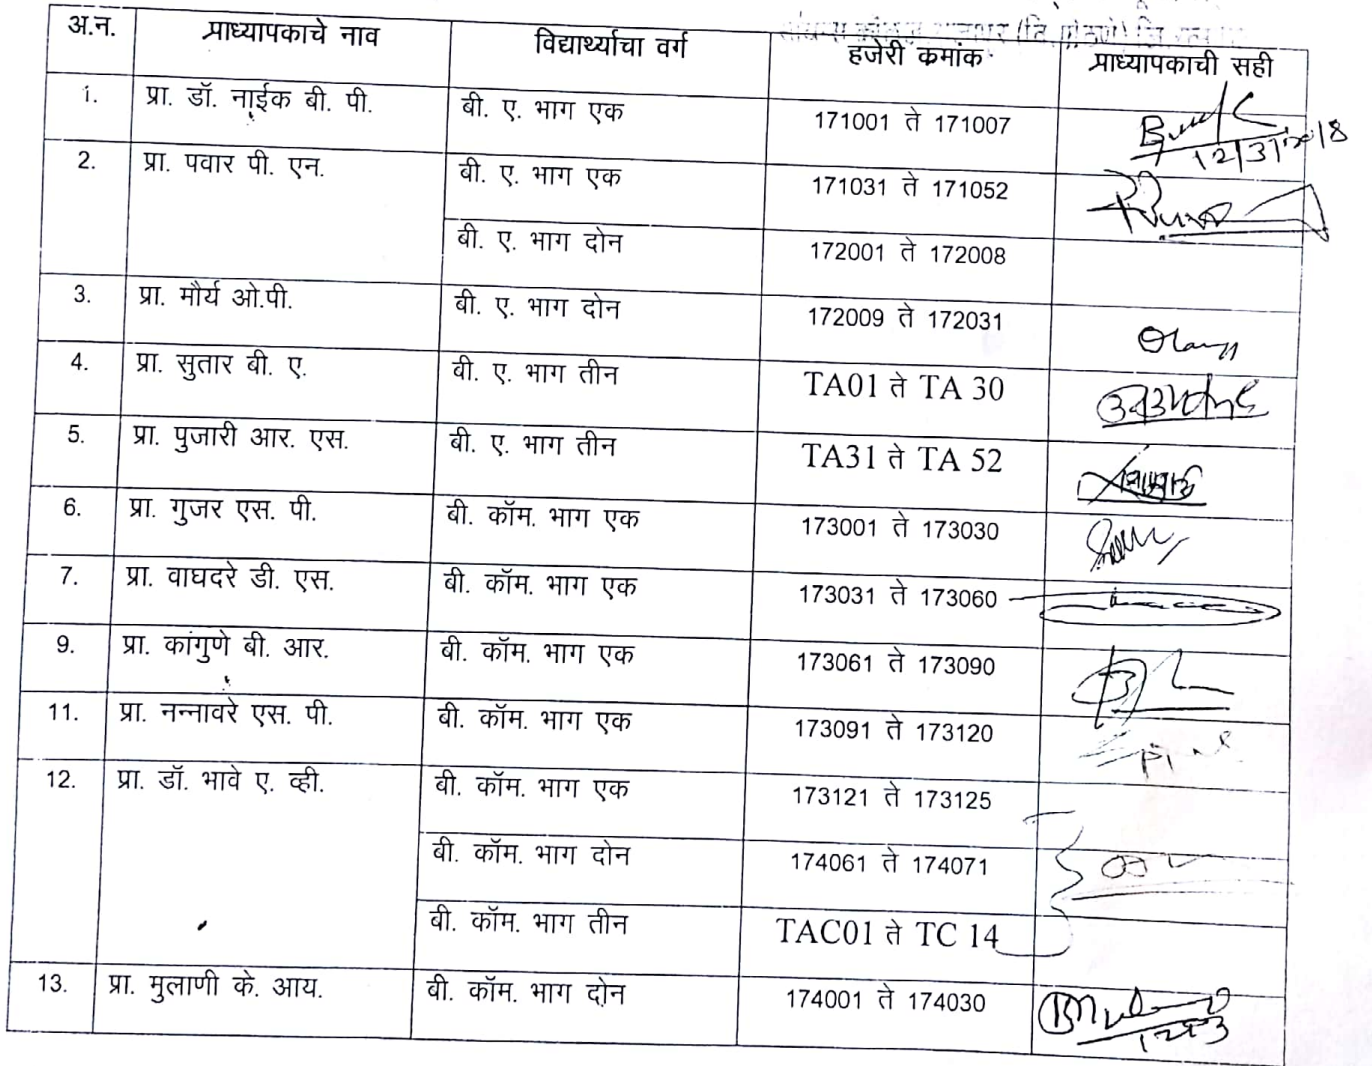 अ.न. प्राध्यापकाचे नाव विद्यार्थ्याचा वर्ग हजेरी क्रमांक प्राध्यापकाची सही
1. प्रा. डॉ. नाईक बी. पी. बी. ए. भाग एक 171001 ते 171007
12/3/2018
2. प्रा. पवार पी. एन. बी. ए. भाग एक 171031 ते 171052
बी. ए. भाग दोन 172001 ते 172008
3. प्रा. मौर्य ओ.पी. बी. ए. भाग दोन 172009 ते 172031
4. प्रा. सुतार बी. ए. बी. ए. भाग तीन TA01 ते TA 30
5. प्रा. पुजारी आर. एस. बी. ए. भाग तीन TA31 ते TA 52
6. प्रा. गुजर एस. पी. बी. कॉम. भाग एक 173001 ते 173030
7. प्रा. वाघदरे डी. एस. बी. कॉम. भाग एक 173031 ते 173060
9. प्रा. कांगुणे बी. आर. बी. कॉम. भाग एक 173061 ते 173090
11. प्रा. नन्नावरे एस. पी. बी. कॉम. भाग एक 173091 ते 173120
12. प्रा. डॉ. भावे ए. व्ही. बी. कॉम. भाग एक 173121 ते 173125
बी. कॉम. भाग दोन 174061 ते 174071
बी. कॉम. भाग तीन TAC01 ते TC 14
13. प्रा. मुलाणी के. आय. बी. कॉम. भाग दोन 174001 ते 174030